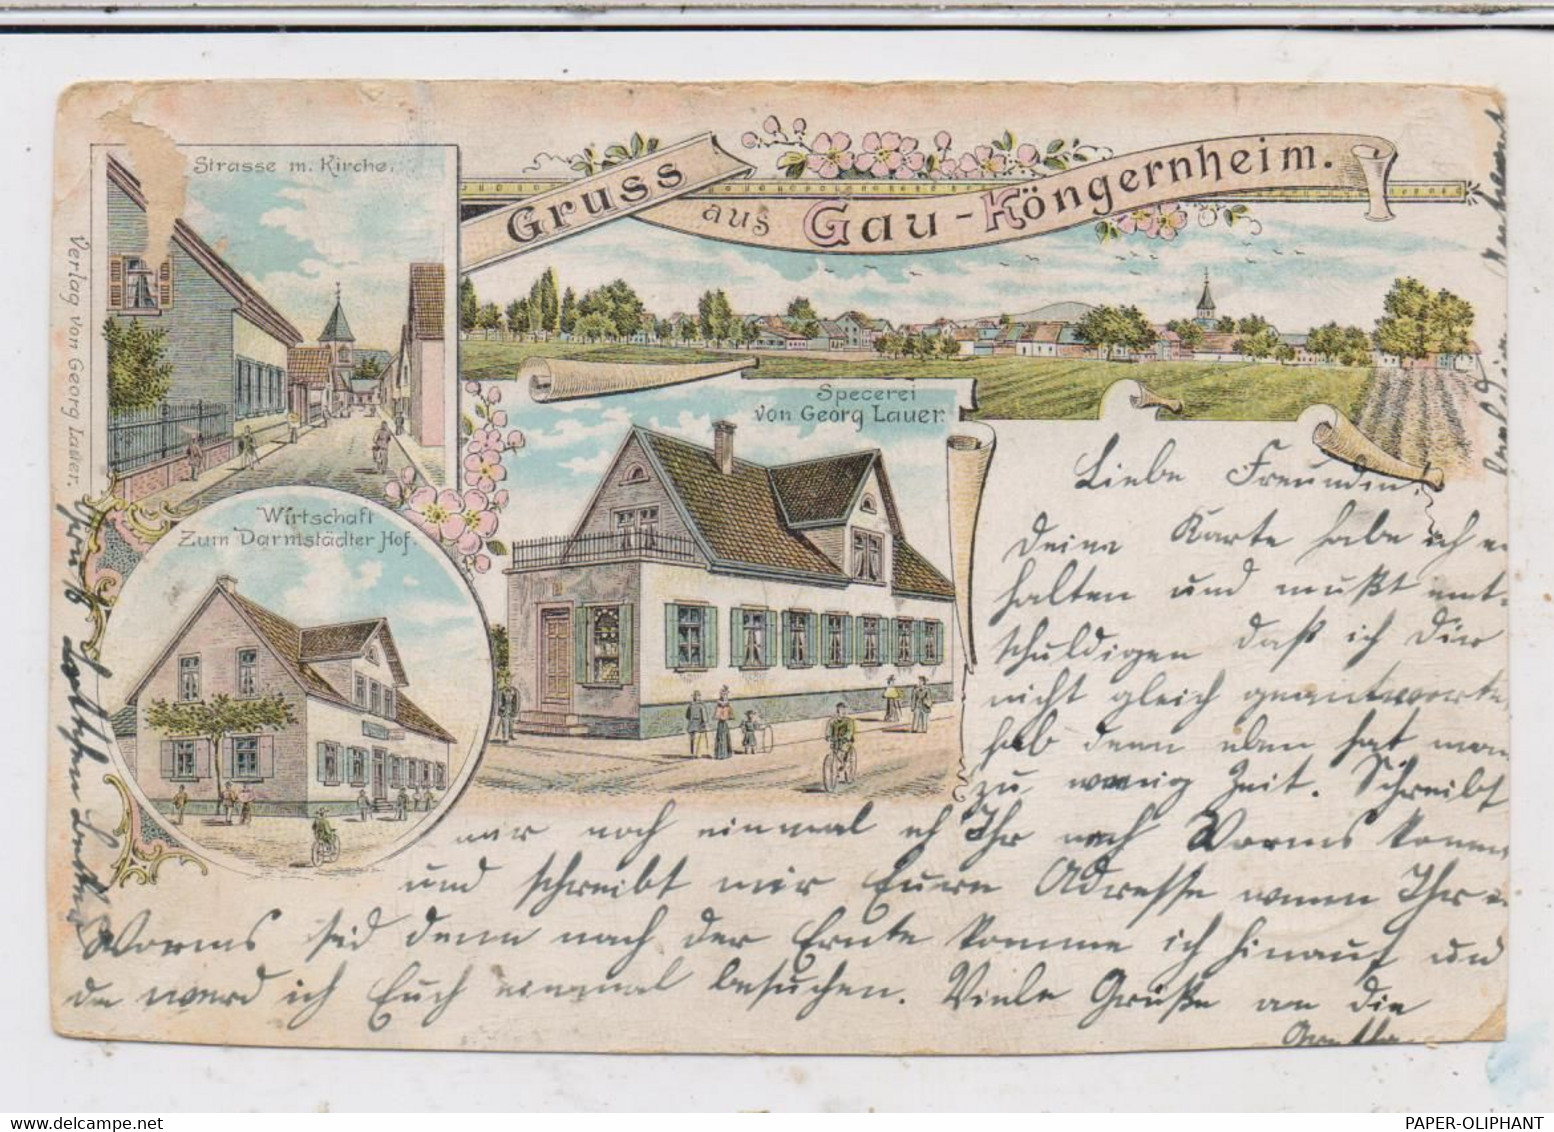 Gruss
aus Gau-Köngernheim.
Strasse m. Kirche.
Verlag von Georg Lauer.
Specerei
von Georg Lauer.
Wirtschaft
Zum Darmstädter Hof.
Liebe Freundin!
Deine Karte habe ich er
halten und mußt ent-
schuldigen daß ich Dir
nicht gleich geantwortet
hab denn eben hat man
zu wenig Zeit. Schreibt
mir noch einmal ob Ihr nach Worms kommt
und schreibt mir Eure Adresse wenn Ihr in
Worms seid denn nach der Ernte komme ich hinauf und
da werd ich Euch einmal besuchen. Viele Grüße an die
PAPER-OLIPHANT